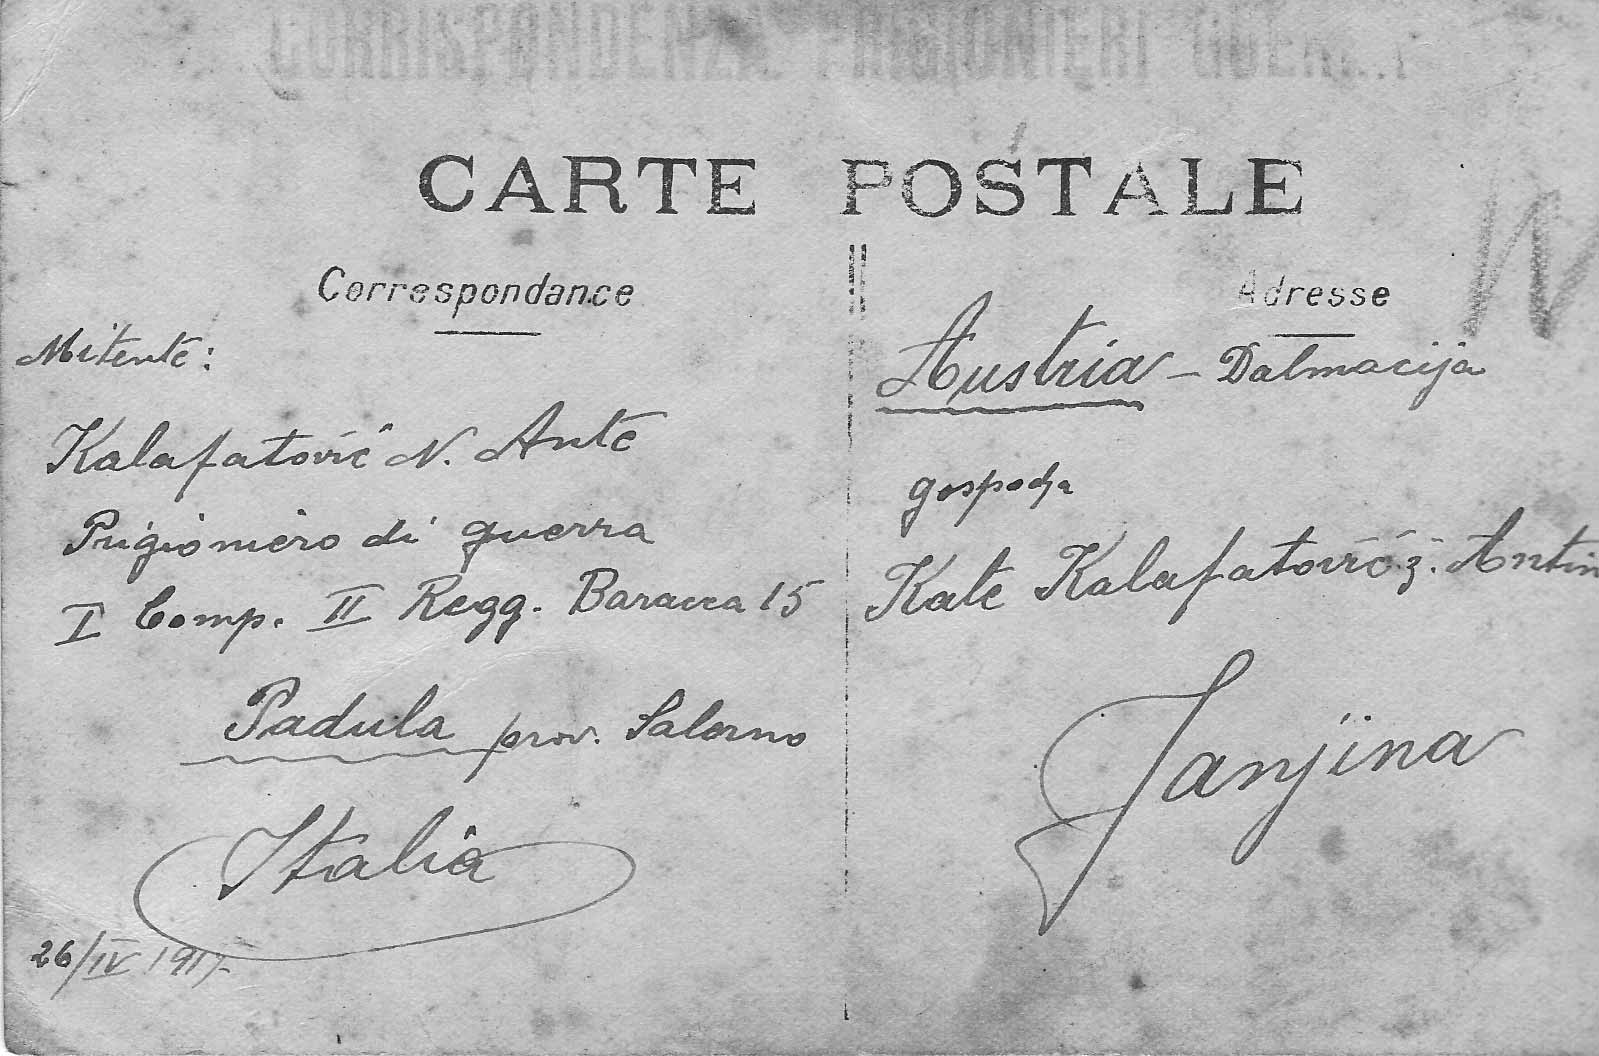 CORRISPONDENZA PRIGIONIERI GUERRA
CARTE POSTALE
Correspondance
Mitente:
Kalafatović N. Ante
Prigioniero di guerra
I Comp. II Regg. Baracca 15
Padula prov. Salerno
Italia
26/IV 1917.
Adresse
Austria – Dalmacija
gospodja
Kate Kalafatović ž. Antina
Janjina